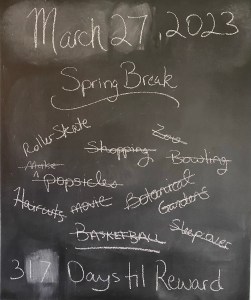 March 27, 2023
Spring Break
Roller Skate
Zoo
Shopping
Bowling
Make
Popsicles
Botanical
Gardens
Haircuts
movie
Sleepover
BASKETBALL
317 Days til Reward